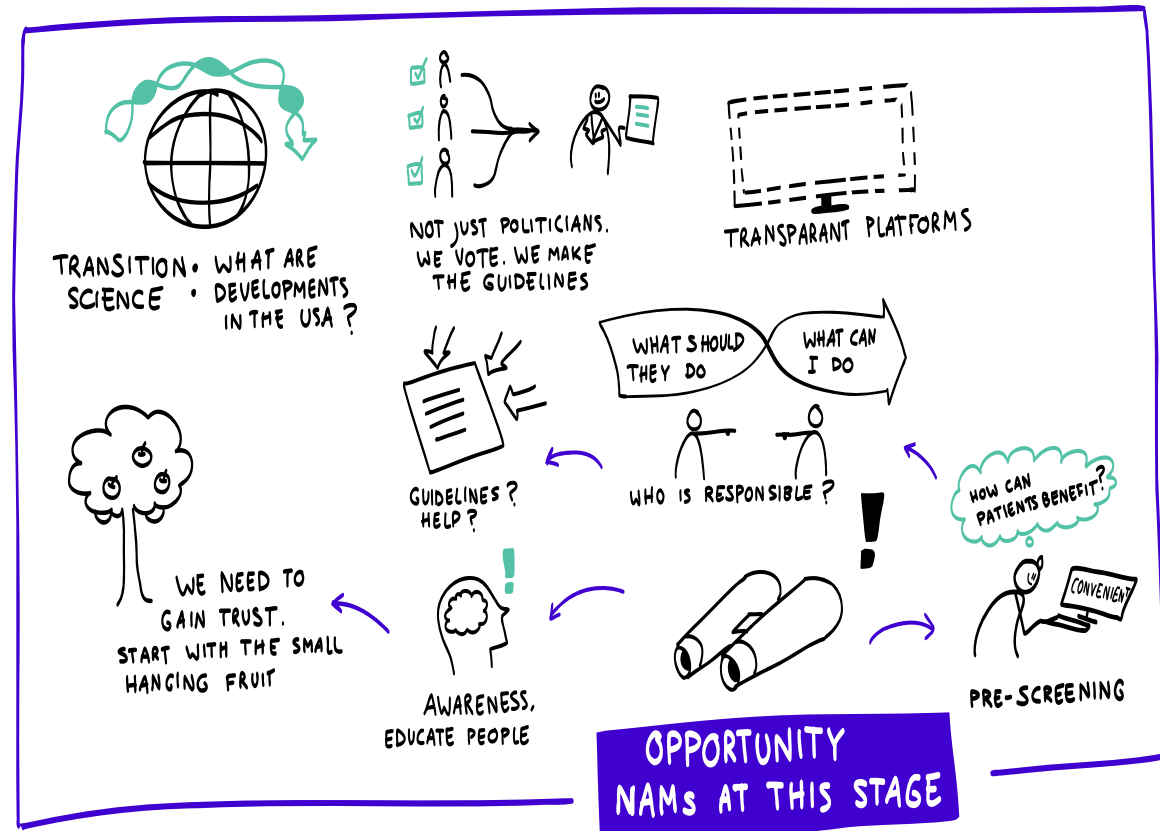 TRANSITION
SCIENCE
• WHAT ARE
• DEVELOPMENTS
IN THE USA?
NOT JUST POLITICIANS.
WE VOTE. WE MAKE
THE GUIDELINES
TRANSPARANT PLATFORMS
WHAT SHOULD
THEY DO
WHAT CAN
I DO
GUIDELINES?
HELP?
WHO IS RESPONSIBLE?
HOW CAN
PATIENTS BENEFIT?
CONVENIENT
PRE-SCREENING
WE NEED TO
GAIN TRUST.
START WITH THE SMALL
HANGING FRUIT
AWARENESS,
EDUCATE PEOPLE
OPPORTUNITY
NAMs AT THIS STAGE